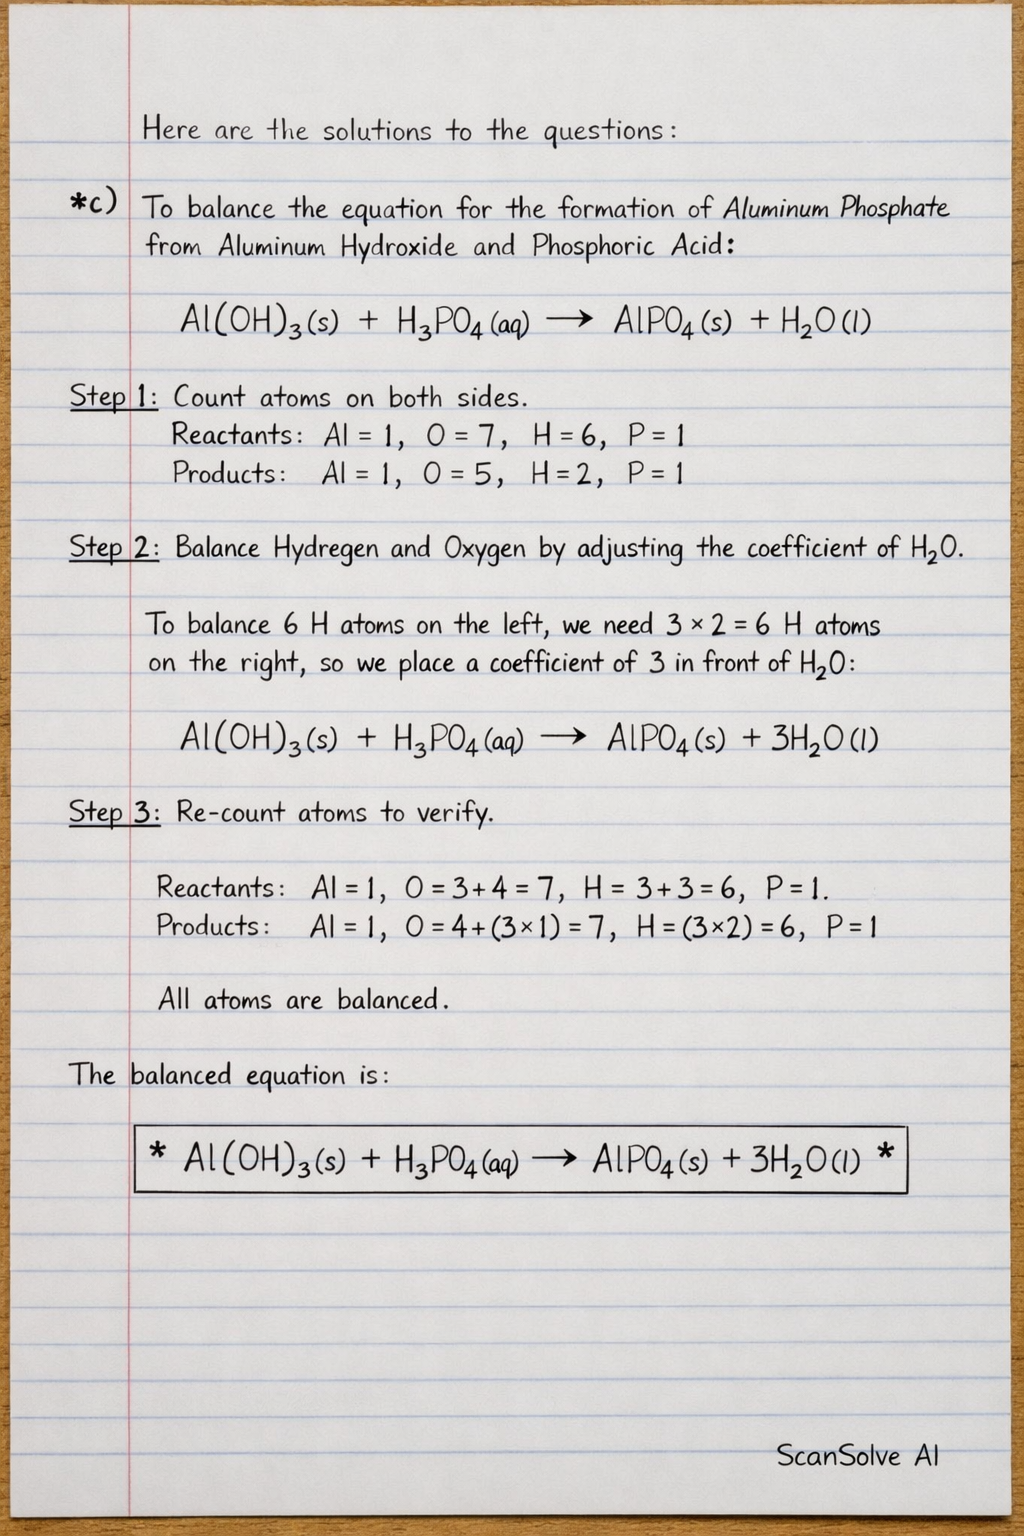 Here are the solutions to the questions:
*c) To balance the equation for the formation of Aluminum Phosphate
from Aluminum Hydroxide and Phosphoric Acid:
Al(OH)₃(s) + H₃PO₄(aq) → AlPO₄(s) + H₂O(l)
Step 1: Count atoms on both sides.
Reactants: Al = 1, O = 7, H = 6, P = 1
Products: Al = 1, O = 5, H = 2, P = 1
Step 2: Balance Hydregen and Oxygen by adjusting the coefficient of H₂O.
To balance 6 H atoms on the left, we need 3 × 2 = 6 H atoms
on the right, so we place a coefficient of 3 in front of H₂O:
Al(OH)₃(s) + H₃PO₄(aq) → AlPO₄(s) + 3H₂O(l)
Step 3: Re-count atoms to verify.
Reactants: Al = 1, O = 3+4 = 7, H = 3+3 = 6, P = 1.
Products: Al = 1, O = 4+(3×1) = 7, H = (3×2) = 6, P = 1
All atoms are balanced.
The balanced equation is:
* Al(OH)₃(s) + H₃PO₄(aq) → AlPO₄(s) + 3H₂O(l) *
ScanSolve AI